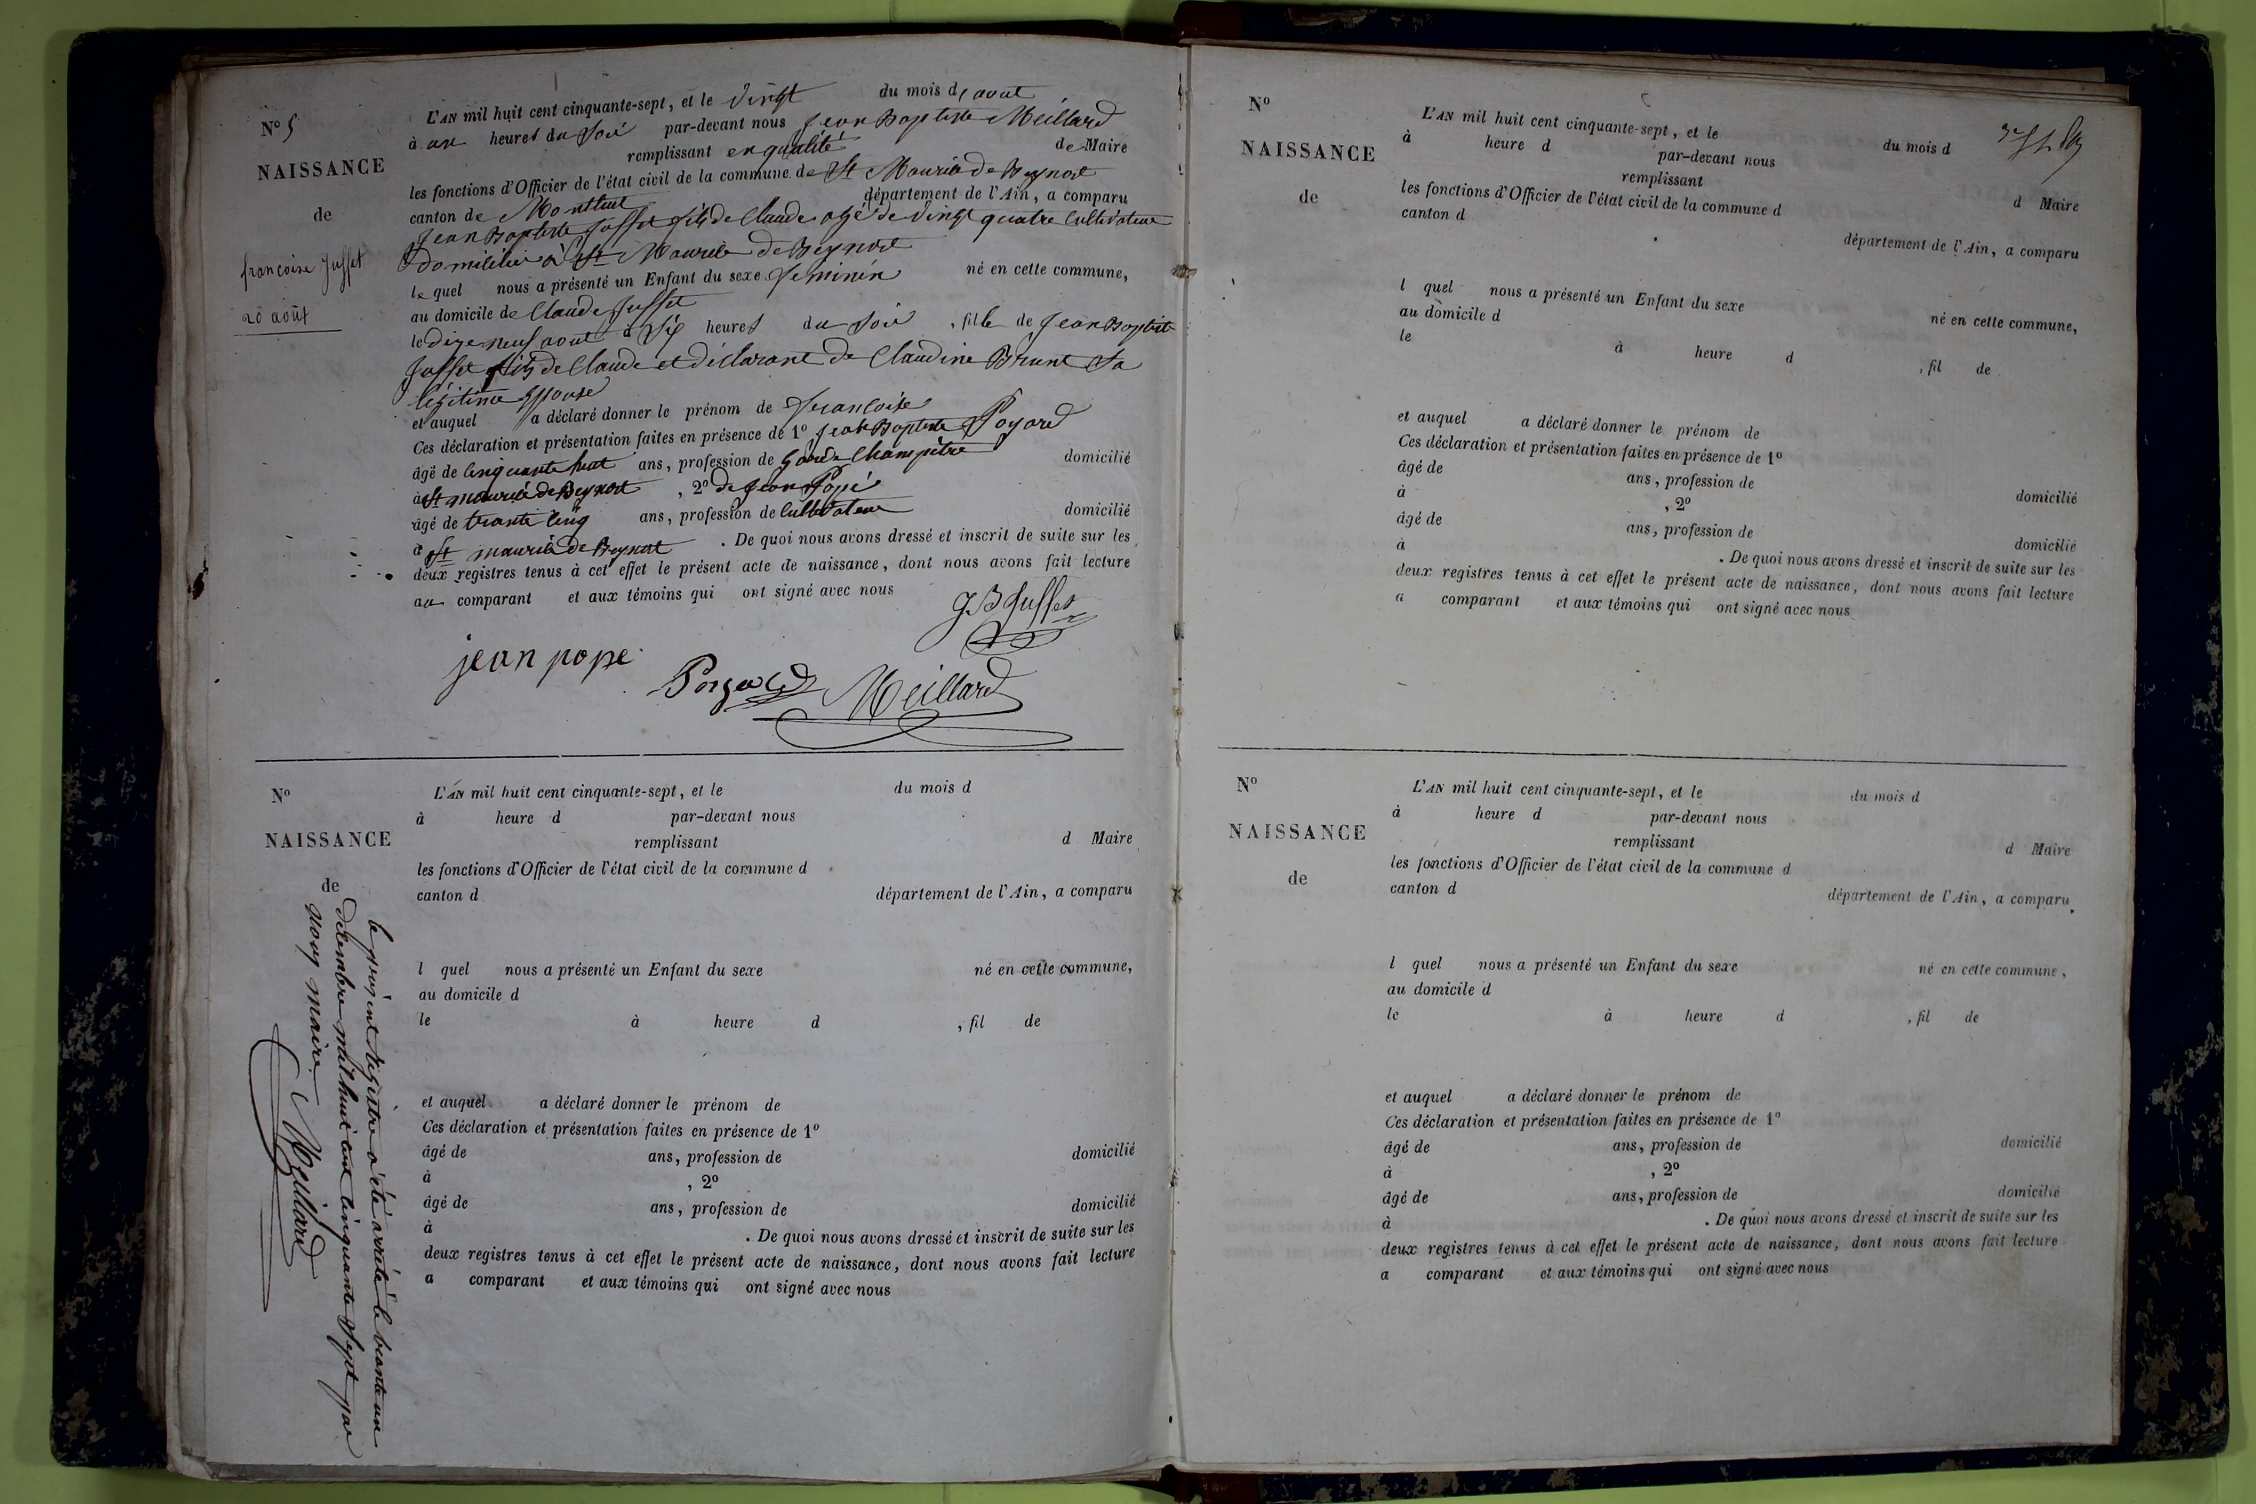 N° 5
NAISSANCE
de
francoise Juffet
20 août
L'AN mil huit cent cinquante-sept, et le vingt du mois d'aout
à un heures du Soir par-devant nous Jean Baptiste Meillard
remplissant en qualité de Maire
les fonctions d'Officier de l'état civil de la commune de St Mauricé de Beynost
canton de Montluel département de l'Ain, a comparu
Jean Baptiste Juffet fils de Claude agé de vingt quatre Cultivateur
domicilié à St Mauricé de Beynost
le quel nous a présenté un Enfant du sexe feminin né en cette commune,
au domicile de Claude Juffet
le dixe neuf aout à Six heures du Soir , fille de Jean Baptiste
Juffet fils de Claude et déclarant de Claudine Brunet Sa
légitime Epouse
et auquel a déclaré donner le prénom de francoise
Ces déclaration et présentation faites en présence de 1° Jean Baptiste Poyard
âgé de Cinquante huit ans, profession de Garde Champêtre domicilié
à St mauricé de Beynost , 2° de Jean Popé
âgé de trante cinq ans, profession de Cultivateur domicilié
à St mauricé de Beynost . De quoi nous avons dressé et inscrit de suite sur les
deux registres tenus à cet effet le présent acte de naissance, dont nous avons fait lecture
au comparant et aux témoins qui ont signé avec nous
J B Juffet
jean pope
Poyard
Meillard
N°
NAISSANCE
de
L'AN mil huit cent cinquante-sept, et le du mois d
à heure d par-devant nous
remplissant d Maire
les fonctions d'Officier de l'état civil de la commune d
canton d département de l'Ain, a comparu
l quel nous a présenté un Enfant du sexe né en cette commune,
au domicile d
le à heure d , fil de
et auquel a déclaré donner le prénom de
Ces déclaration et présentation faites en présence de 1°
âgé de ans, profession de domicilié
à , 2°
âgé de ans, profession de domicilié
à . De quoi nous avons dressé et inscrit de suite sur les
deux registres tenus à cet effet le présent acte de naissance, dont nous avons fait lecture
a comparant et aux témoins qui ont signé avec nous
le present registre a été arrété le trante un
décembre mil huit cent cinquante Sept par
nous maire
Meillard
N°
NAISSANCE
de
L'AN mil huit cent cinquante-sept, et le du mois d
à heure d par-devant nous
remplissant d Maire
les fonctions d'Officier de l'état civil de la commune d
canton d département de l'Ain, a comparu
l quel nous a présenté un Enfant du sexe né en cette commune,
au domicile d
le à heure d , fil de
et auquel a déclaré donner le prénom de
Ces déclaration et présentation faites en présence de 1°
âgé de ans, profession de domicilié
à , 2°
âgé de ans, profession de domicilié
à . De quoi nous avons dressé et inscrit de suite sur les
deux registres tenus à cet effet le présent acte de naissance, dont nous avons fait lecture
a comparant et aux témoins qui ont signé avec nous
N°
NAISSANCE
de
L'AN mil huit cent cinquante-sept, et le du mois d
à heure d par-devant nous
remplissant d Maire
les fonctions d'Officier de l'état civil de la commune d
canton d département de l'Ain, a comparu
l quel nous a présenté un Enfant du sexe né en cette commune,
au domicile d
le à heure d , fil de
et auquel a déclaré donner le prénom de
Ces déclaration et présentation faites en présence de 1°
âgé de ans, profession de domicilié
à , 2°
âgé de ans, profession de domicilié
à . De quoi nous avons dressé et inscrit de suite sur les
deux registres tenus à cet effet le présent acte de naissance, dont nous avons fait lecture
a comparant et aux témoins qui ont signé avec nous